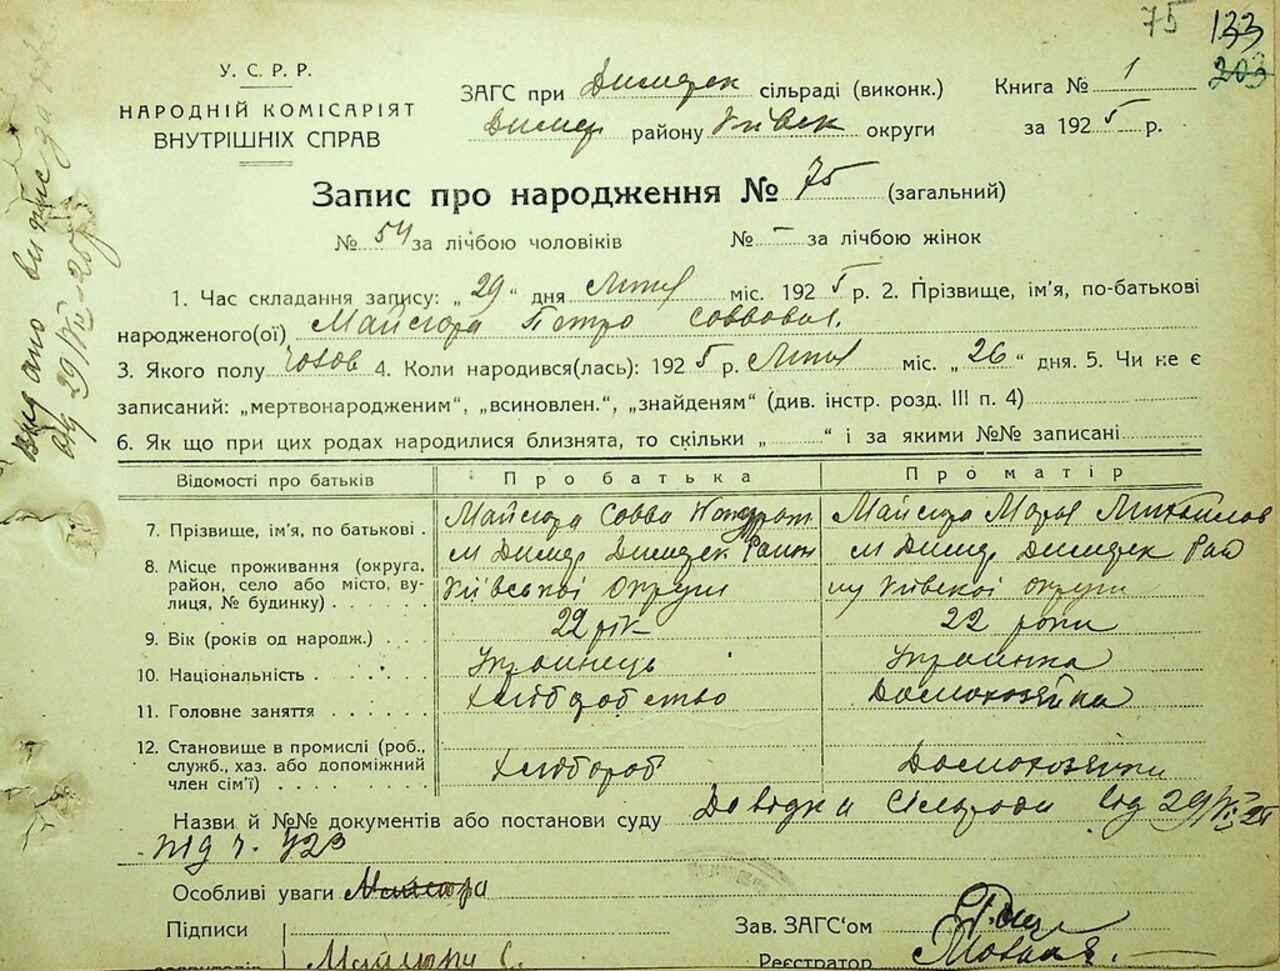 75 133
203
У. С. Р. Р.
НАРОДНІЙ КОМІСАРІЯТ
ВНУТРІШНІХ СПРАВ
ЗАГС при Димерск сільраді (виконк.) Книга № 1
Димер району Київск округи за 1925 р.
Запис про народження № 75 (загальний)
№ 54 за лічбою чоловіків № - за лічбою жінок
1. Час складання запису: „29“ дня Липня міс. 1925 р. 2. Прізвище, ім'я, по-батькові
народженого(ої) Майстра Петро Саввович.
3. Якого полу чолов 4. Коли народився(лась): 1925 р. Липня міс. „26“ дня. 5. Чи не є
записаний: „мертвонародженим“, „всиновлен.“, „знайденям“ (див. інстр. розд. III п. 4)
6. Як що при цих родах народилися близнята, то скільки „ “ і за якими №№ записані
Відомості про батьків Про батька Про матір
7. Прізвище, ім'я, по батькові . Майстра Савва Кондрат Майстра Марія Михайлов
8. Місце проживання (округа, м Димер Димерск Район м Димер Димерск Рай
район, село або місто, ву-
лиця, № будинку) . . . . . . Київської Округи ону Київскоі округи
9. Вік (років од народж.) . . . 22 рік 22 роки
10. Національність . . . . . Українець Українка
11. Головне заняття . . . . . . Хліборобство Домохозяйка
12. Становище в промислі (роб.,
служб., хаз. або допоміжний Хлібороб Домохозяйка
член сім'ї) . . . . . . . . .
Назви й №№ документів або постанови суду Довідка Сільради від 29/VII 25
під ч. 423
Особливі уваги Майстра
Підписи Зав. ЗАГС'ом
Реєстратор